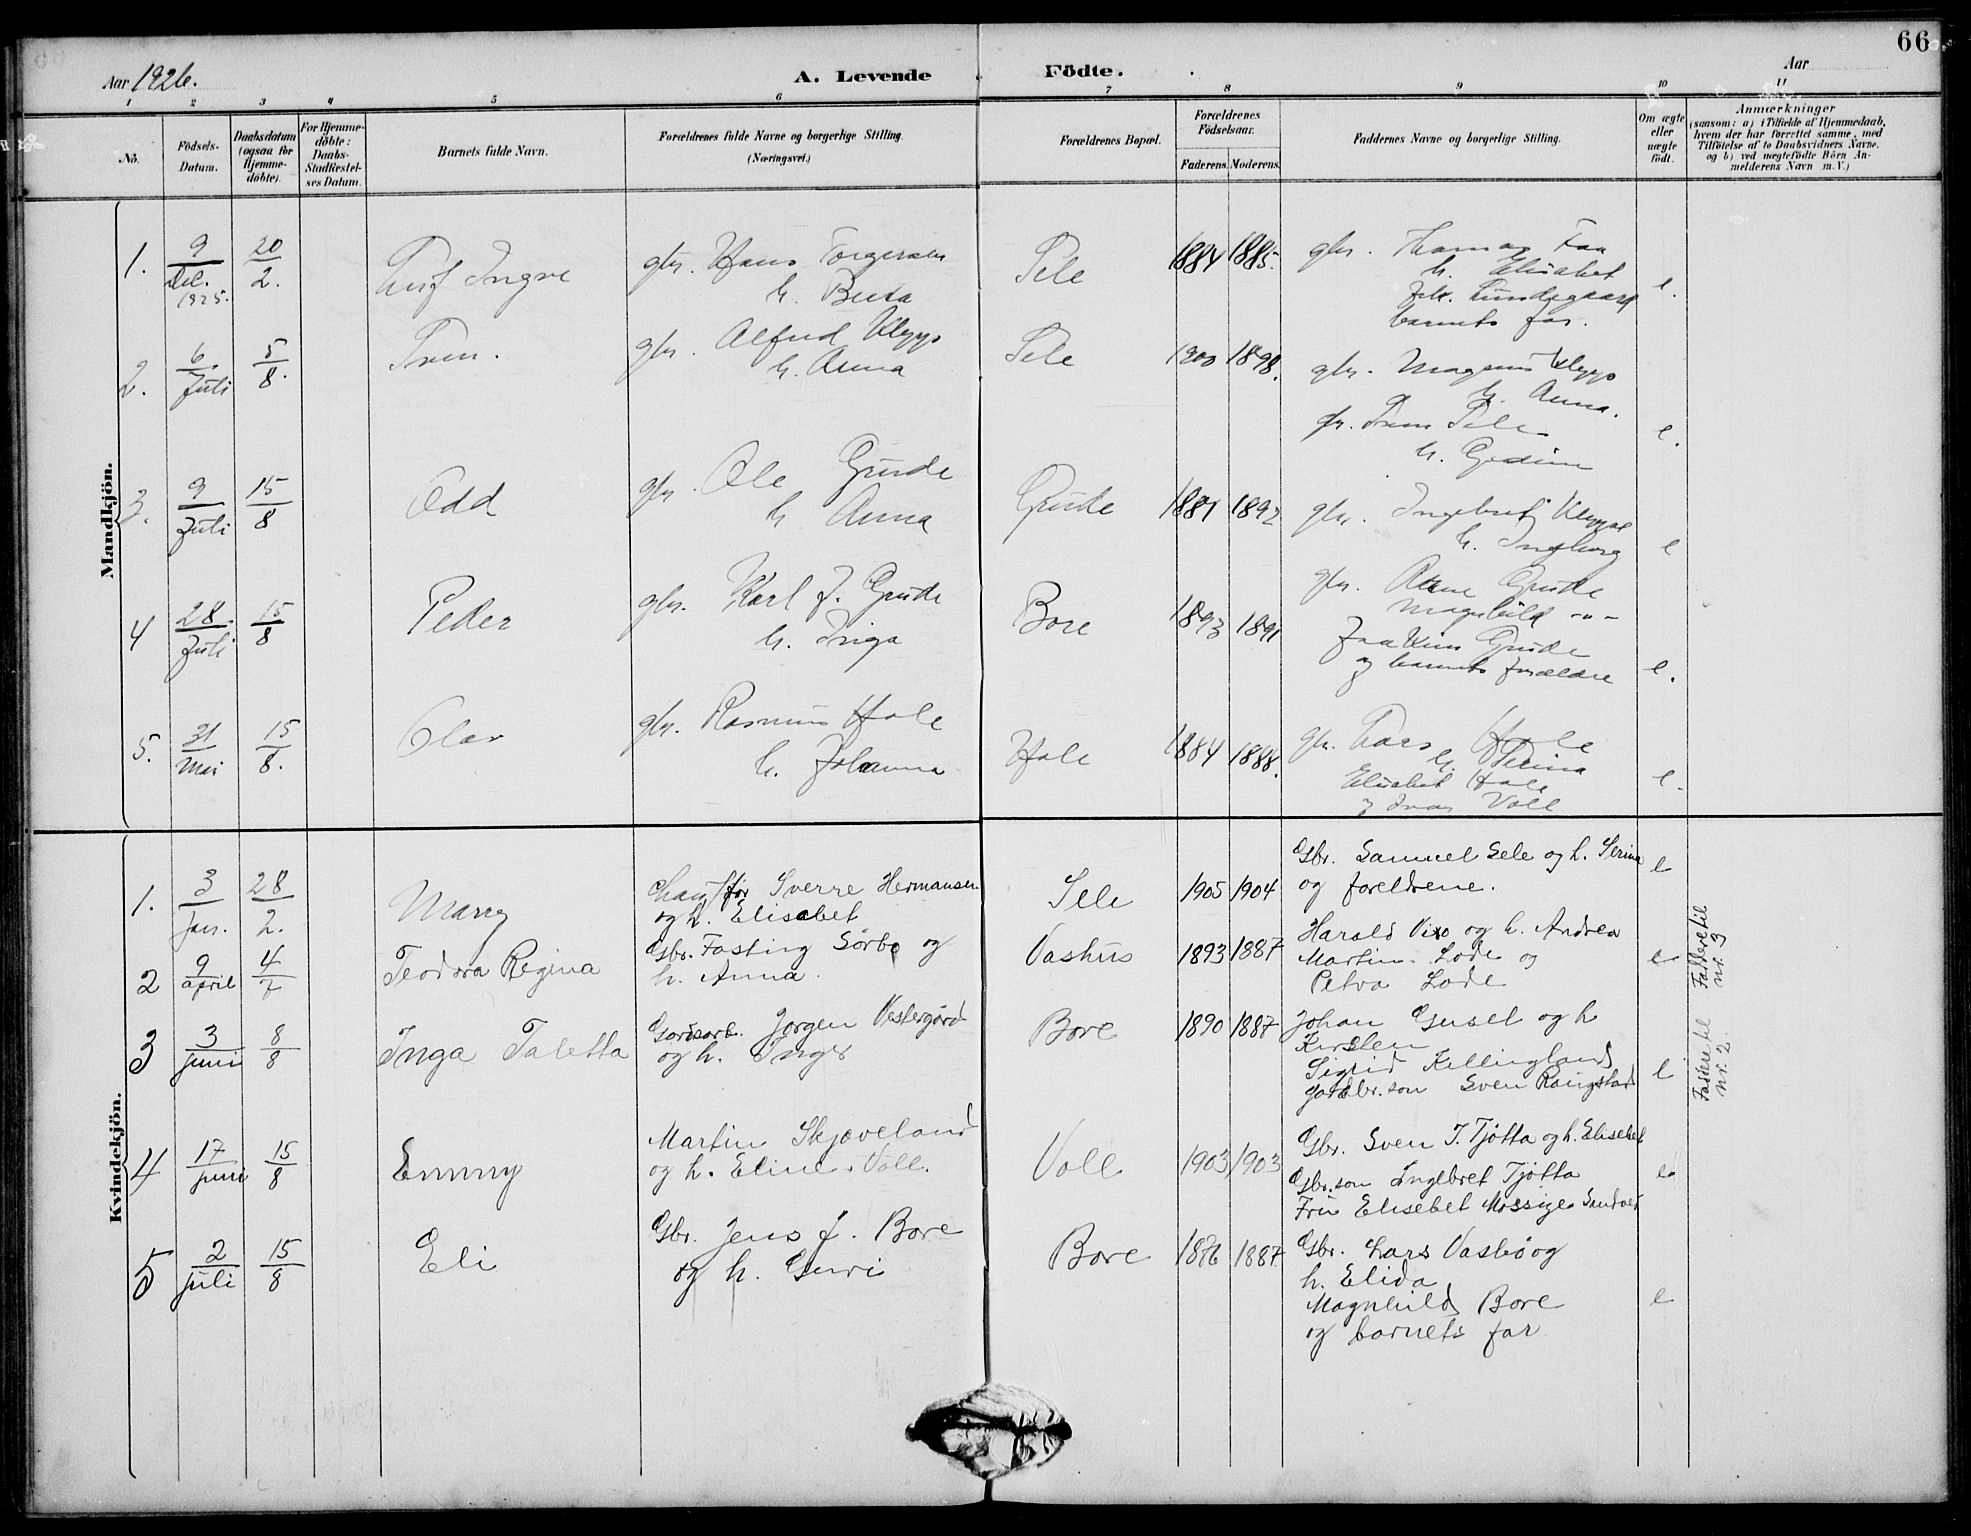 66
Aar 1926.
A. Levende Födte.
Aar
1 2 3 4 5 6 7 8 9 10 11
No.
Födsels-
Datum.
Daabsdatum
(ogsaa for
Hjemme-
döbte).
For Hjemme-
döbte:
Daabs-
Stadfæstel-
ses Datum.
Barnets fulde Navn.
Forældrenes fulde Navne og borgerlige Stilling.
(Næringsvei.)
Forældrenes Bopæl.
Forældrenes
Födselsaar.
Faderens. Moderens.
Faddernes Navne og borgerlige Stilling.
Om ægte
eller
uægte
födt.
Anmærkninger
(saasom: a) i Tilfælde af Hjemmedaab,
hvem der har forrettet samme, med
Tilföielse af to Daabsvidners Navne.
og b) ved uægtefödte Börn An-
melderens Navn m.V.)
Mandkjön.
1. 9/Dec. 1925. 20/2. Leif Ingve
gbr. Hans Torgersen
h. Berta
Sele 1884 1885.
gbr. Thomas Faa
h. Elisabet
frk. Lundegaard
barnets far.
e.
2. 6/Juli 5/8. Sven.
gbr. Alfred Klepp
h. Anna
Sele 1900 1898.
gbr. Magnus Klepp
h. Anna.
gbr. Sven Sele
h. Gedine
e.
3. 9/Juli 15/8 Odd
gbr. Ole Grude
h. Anna
Grude 1881 1892
gbr. Ingebret Kleppe
h. Ingeborg
e
4 28/Juli 15/8 Peder
gbr. Karl J. Grude
h. Inga
Bore 1893 1891
gbr. Arne Grude
Magnhild -"-
Joakim Grude
og barnets forældre
e.
5. 31/Mai 15/8. Olav
gbr. Rasmus Hole
h. Johanna
Hole 1884 1888.
gbr. Lars Hole
h. Serina
Elisabet Hole
og Voll
e.
Kvindekjön.
1. 3/jan. 28/2. Marry
Chauffør Sverre Hermansen
og h. Elisabet
Sele 1905 1904
Gbr. Samuel Sele og h. Serina
og foreldrene.
e
2 9/april 4/7 Teodora Regina
Gbr. Fasting Sörbø og
h. Anna.
Vashus 1893 1887
Harald Vixo og h. Andrea
Martin Lode og
Petra Lode
e
Faddere til
nr. 3
3 3/juni 8/8 Inga Taletta
Gardsarb. Jørgen Vestergård
og h. Inger
Bore 1890 1887
Johan Grusel og h
Kirsten
Sigrid Kellingland
gardbr. son Sven Rangstad
e
Faddere til
nr. 2.
4 17/juni 15/8 Emmy
Martin Skjæveland
og h. Eline, Voll.
Voll 1903 1903
Gbr. Sven T. Tjötta og h. Elisebet
Gbr. son Ingebret Tjötta
Frü Elisebet Mossige Sandved
e
5 2/juli 15/8 Eli
Gbr. Jens J. Bore
og h. Guri
Bore 1876 1887
Gbr. Lars Vasbö og
h. Elida
Magnhild Bore
og barnets far
e